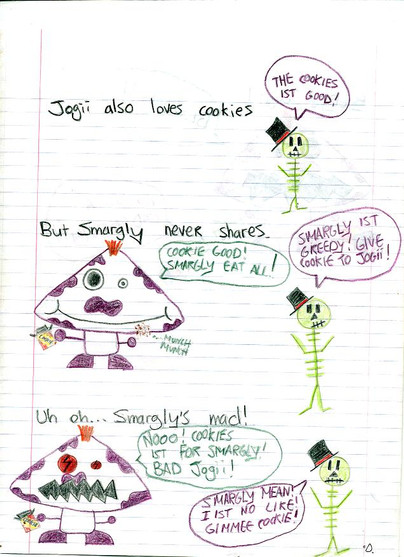 THE COOKIES
IST GOOD!
Jogii also loves cookies
But Smargly never shares.
COOKIE GOOD!
SMARGLY EAT ALL!
SMARGLY IST
GREEDY! GIVE
COOKIE TO JOGII!
MUNCH
MUNCH
Uh oh... Smargly's mad!
NOOO! COOKIES
IST FOR SMARGLY!
BAD JOGII!
SMARGLY MEAN!
I IST NO LIKE!
GIMMEE COOKIE!